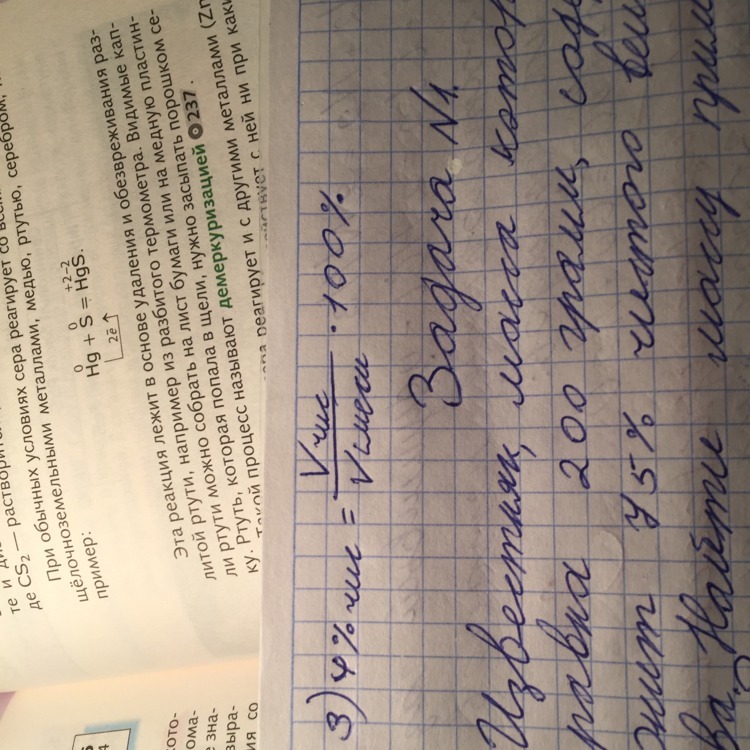 те и
де CS₂ — растворит
При обычных условиях сера реагирует со
щёлочноземельными металлами, медью, ртутью, серебром,
пример:
0 0 +2 −2
Hg + S = HgS.
2ē
Эта реакция лежит в основе удаления и обезвреживания раз-
литой ртути, например из разбитого термометра. Видимые кап-
ли ртути можно собрать на лист бумаги или на медную пластин-
ку. Ртуть, которая попала в щели, нужно засыпать порошком се-
Такой процесс называют демеркуризацией 237.
сера реагирует и с другими металлами (Zn
ней ни при каки
3) φ% чис = Vчис / Vсмеси · 100%
Задача N1.
Известняк, масса котор
равна 200 грамм, соде
жит 75% чистого вещ
ва. Найти массу прим